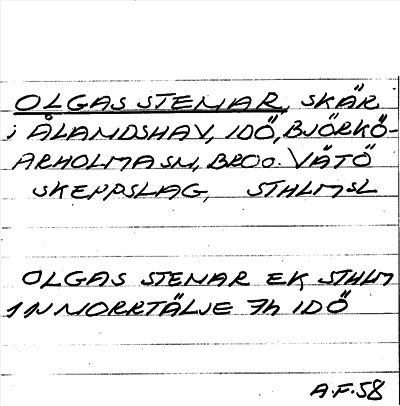 OLGAS STENAR, SKÄR
i ÅLANDSHAV, IDÖ, BJÖRKÖ-
ARHOLMA SN, BRO o. VÄTÖ
SKEPPSLAG, STHLMSL
OLGAS STENAR EK STHLM
1N NORRTÄLJE 7h IDÖ
A.F.58